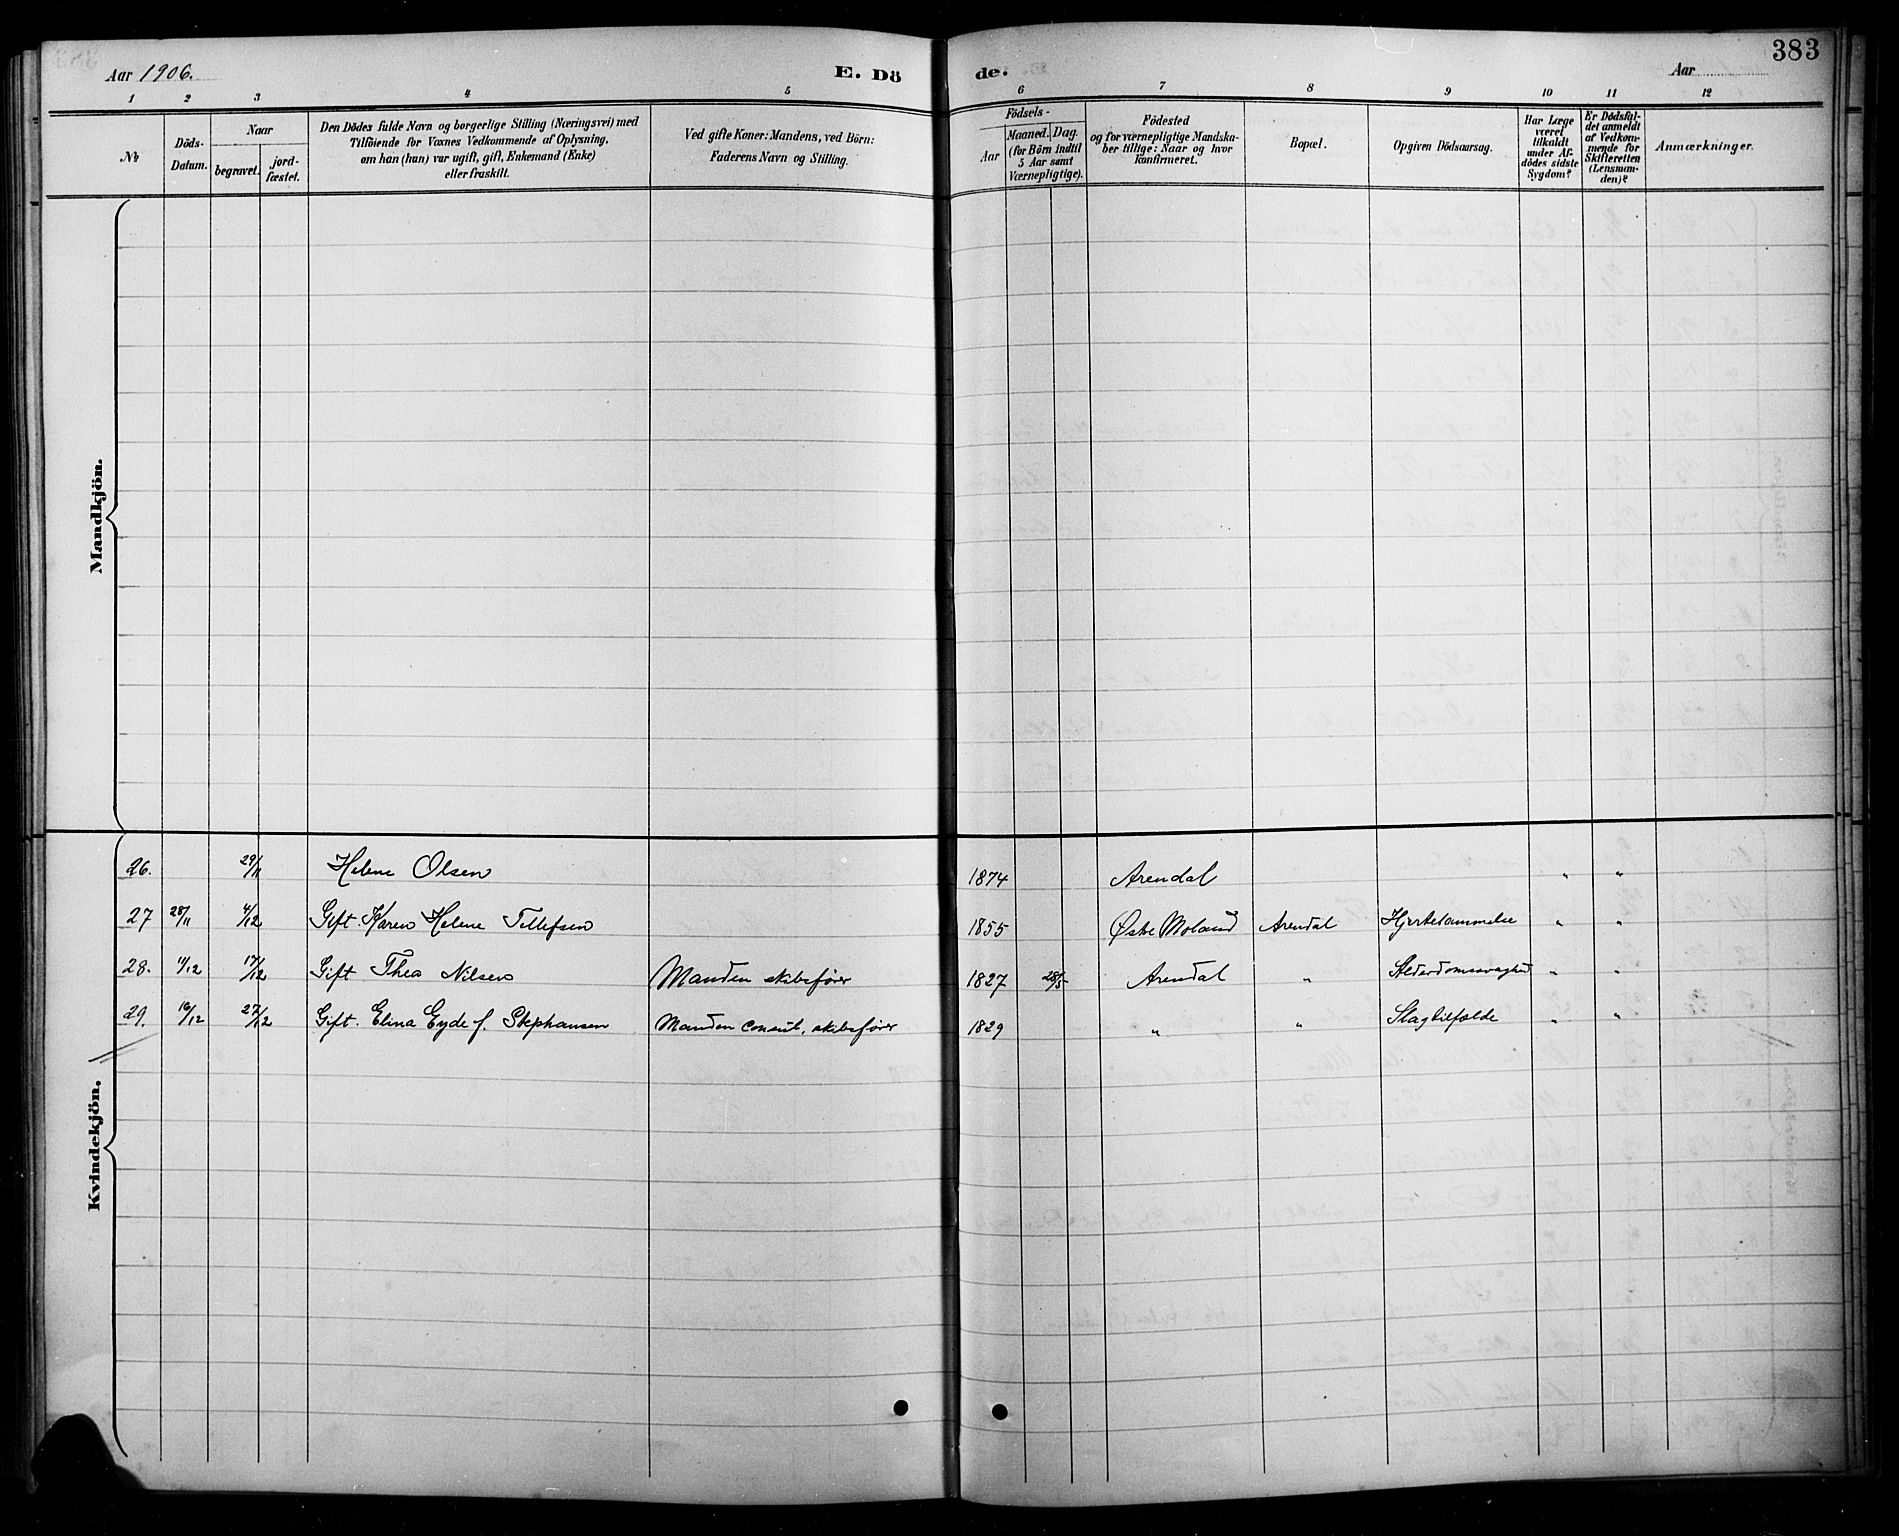 383
Aar 1906. E. Dö de. Aar
1 2 3 4 5 6 7 8 9 10 11 12
№
Döds-
Datum.
Naar
begravet. jord-
fæstet.
Den Dödes fulde Navn og borgerlige Stilling (Næringsvei) med
Tilföiende for Voxnes Vedkommende af Oplysning,
om han (hun) var ugift, gift, Enkemand (Enke)
eller fraskilt.
Ved gifte Koner: Mandens, ved Börn:
Faderens Navn og Stilling.
Födsels-
Aar
Maaned. Dag.
(for Börn indtil
5 Aar samt
Værnepligtige).
Födested
og for værnepligtige Mandska-
ber tillige: Naar og hvor
Konfirmeret.
Bopæl.
Opgiven Dödsaarsag.
Har Læge
været
tilkaldt
under Af-
dödes sidste
Sygdom?
Er Dödsfal-
det anmeldt
af Vedkom-
mende for
Skifteretten
(Lensman-
den)?
Anmærkninger.
Mandkjön.
Kvindekjön.
26. 29/11 Helene Olsen 1874 Arendal " "
27 28/11 4/12 Gift. Karen Helene Tellefsen 1855 Østre Moland Arendal Hjertelammelse " "
28. 11/12 17/12 Gift Thea Nilsen Manden skibsfører 1827 28/5 Arendal " Alderdomssvaghed " "
29. 16/12 27/12 Gift. Elina Eyde f. Stephansen Manden consul, skibsfører 1829 " " Slagtilfælde " "